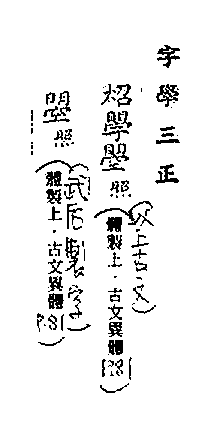 字學三正
照(以上古文)
(體製上．古文異體 P.81)
照(武后製字)
(體製上．古文異體 P.81)